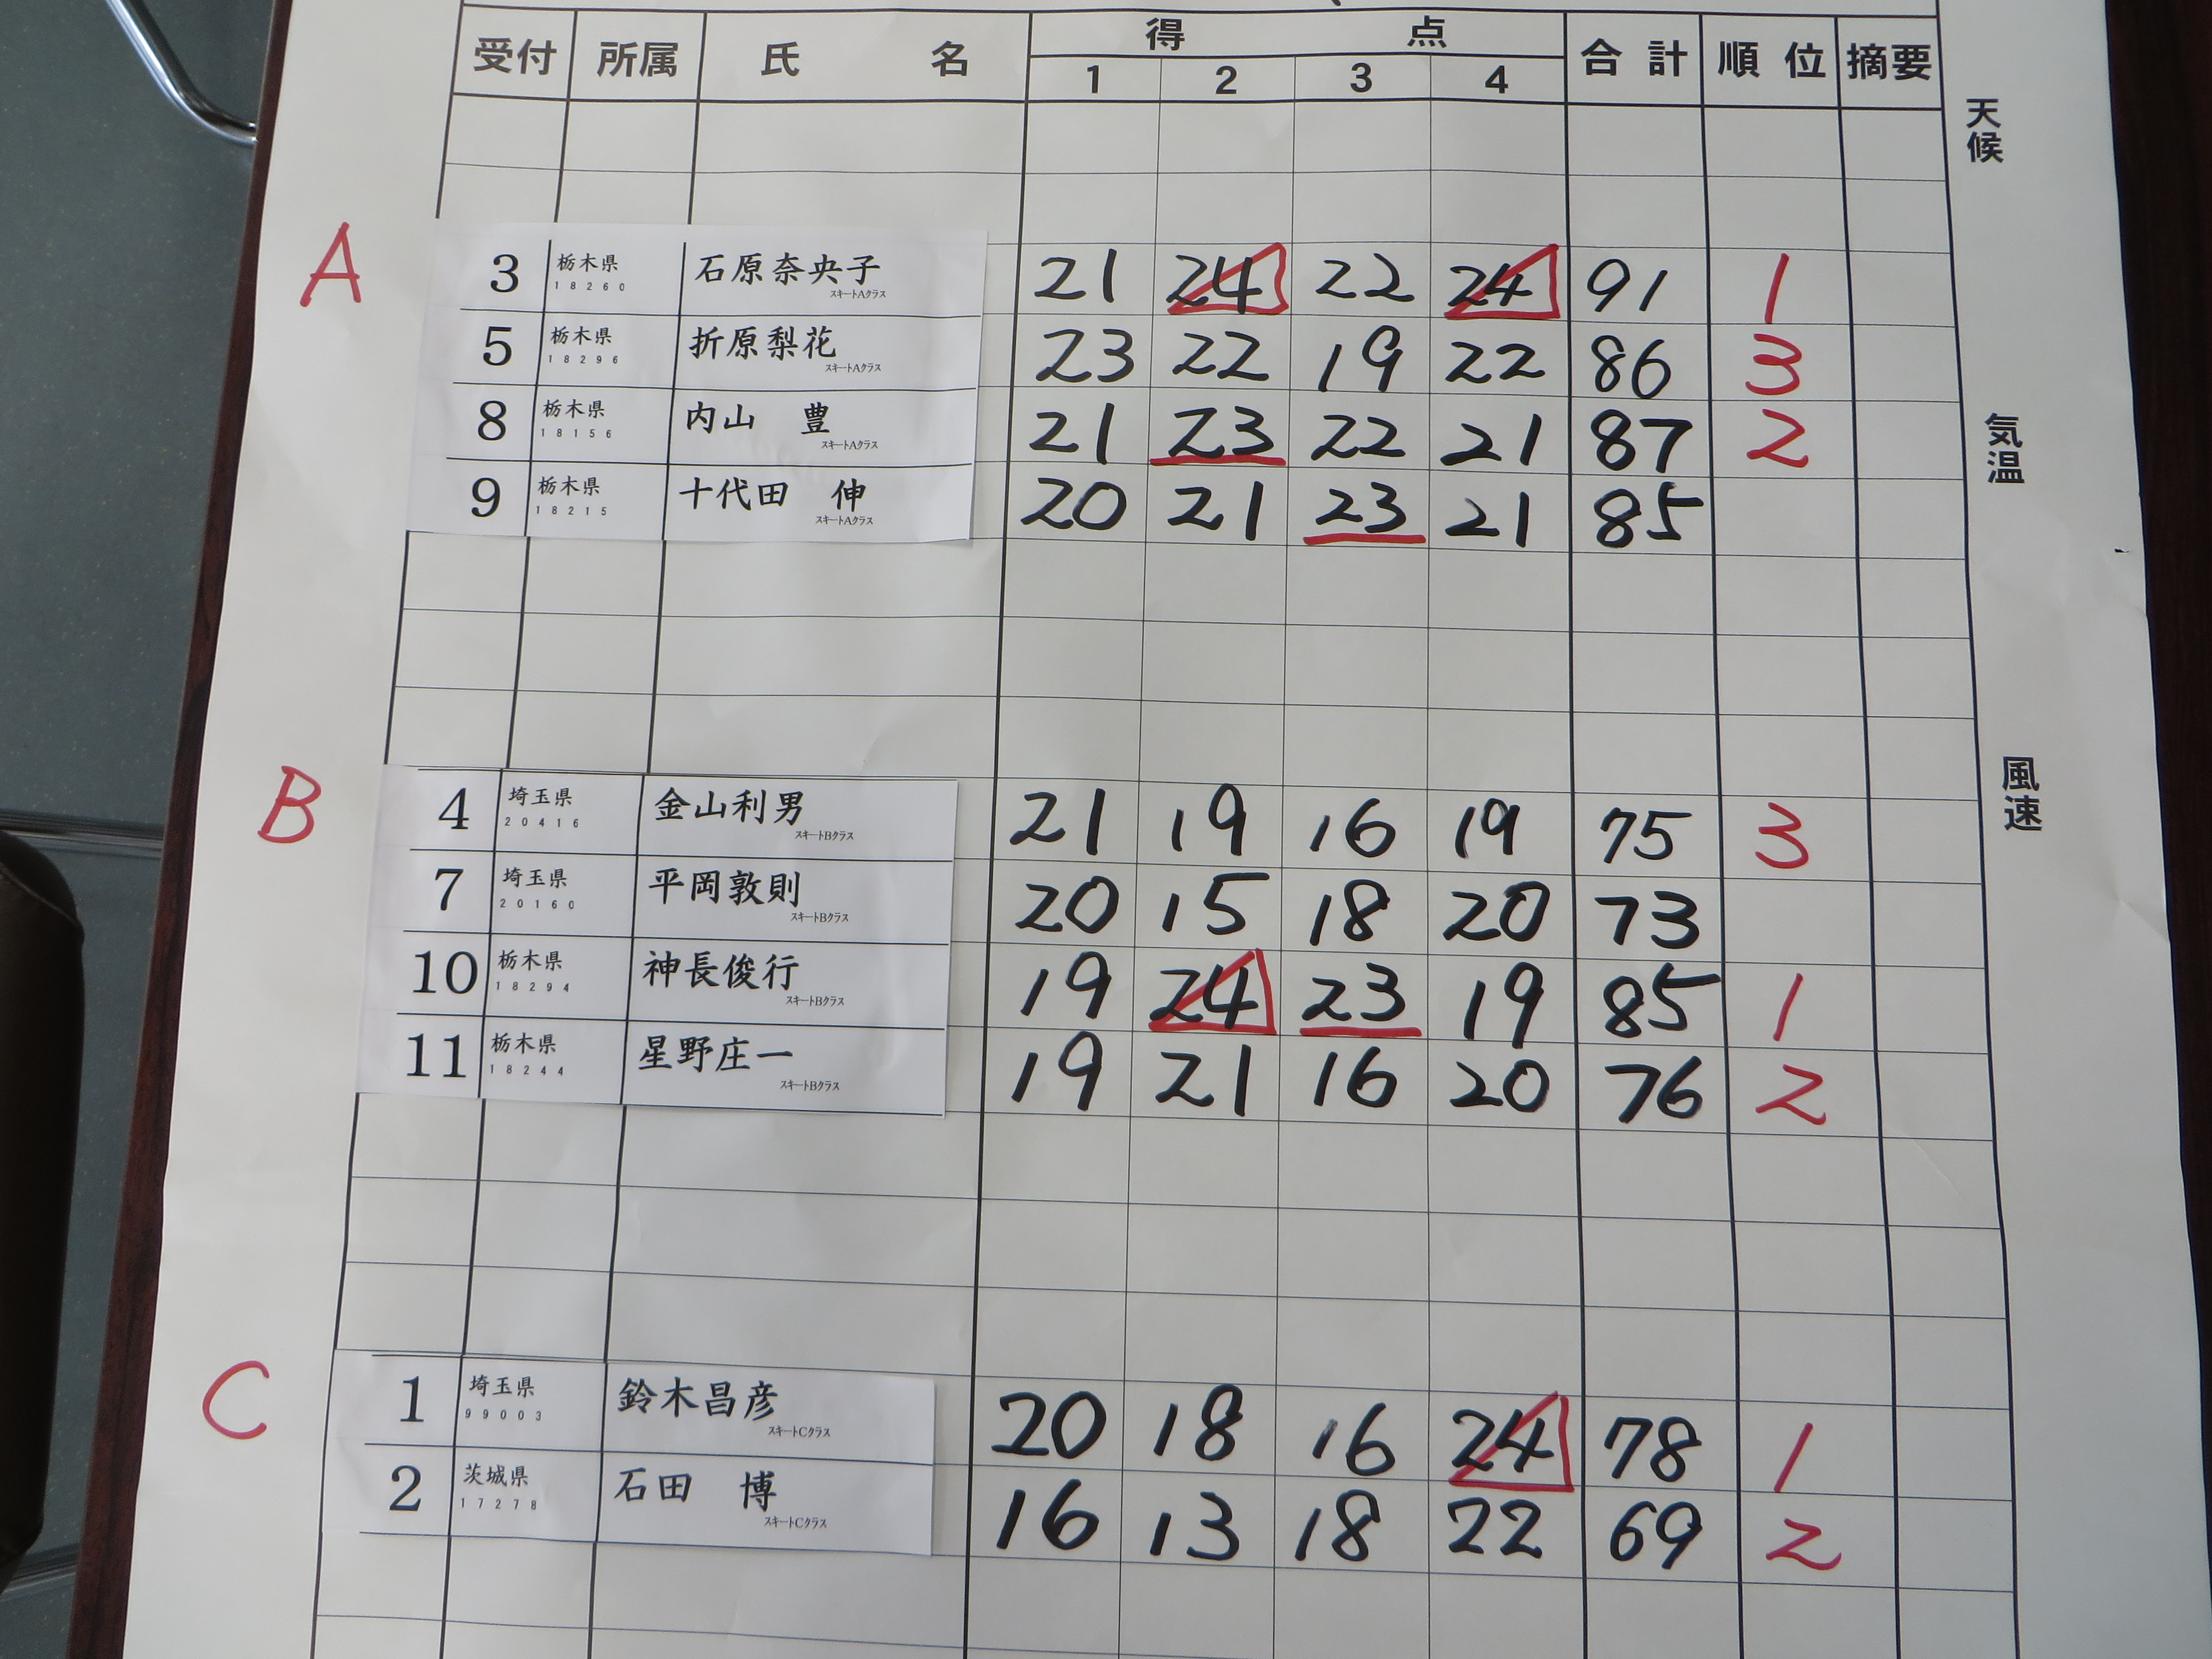 受付 所属 氏名 得点 合計 順位 摘要
1 2 3 4
天候
A
3 栃木県 18260 石原奈央子 スキートAクラス 21 24 22 24 91 1
5 栃木県 18296 折原梨花 スキートAクラス 23 22 19 22 86 3
8 栃木県 18156 内山 豊 スキートAクラス 21 23 22 21 87 2
気温
9 栃木県 18215 十代田 伸 スキートAクラス 20 21 23 21 85
B
4 埼玉県 20416 金山利男 スキートBクラス 21 19 16 19 75 3
風速
7 埼玉県 20160 平岡敦則 スキートBクラス 20 15 18 20 73
10 栃木県 18294 神長俊行 スキートBクラス 19 24 23 19 85 1
11 栃木県 18244 星野庄一 スキートBクラス 19 21 16 20 76 2
C
1 埼玉県 99003 鈴木昌彦 スキートCクラス 20 18 16 24 78 1
2 茨城県 17278 石田 博 スキートCクラス 16 13 18 22 69 2